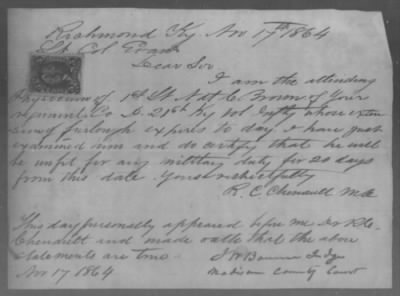 Richmond Ky Nov 17th 1864
Lt Col Evans
Dear Sir
I am the attending
Physician of 1st Lt Nat C. Brown of Your
regiment Co D. 21st Ky Vol Infty whose exten
sion of furlough expires to day. I have just
examined him and do certify that he will
be unfit for any military duty for 20 days
from this date. Yours respectfully
R. C. Chenault M.D.
This day personally appeared before me Dr R. C.
Chenault and made oath that the above
statements are true
Nov 17 1864
Madison County Court